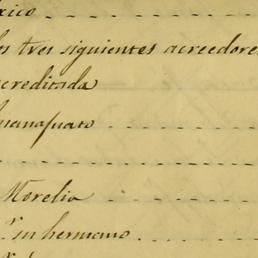 xico
los tres siguientes acreedores
acreditada
uanajuato
Morelia
su hermano